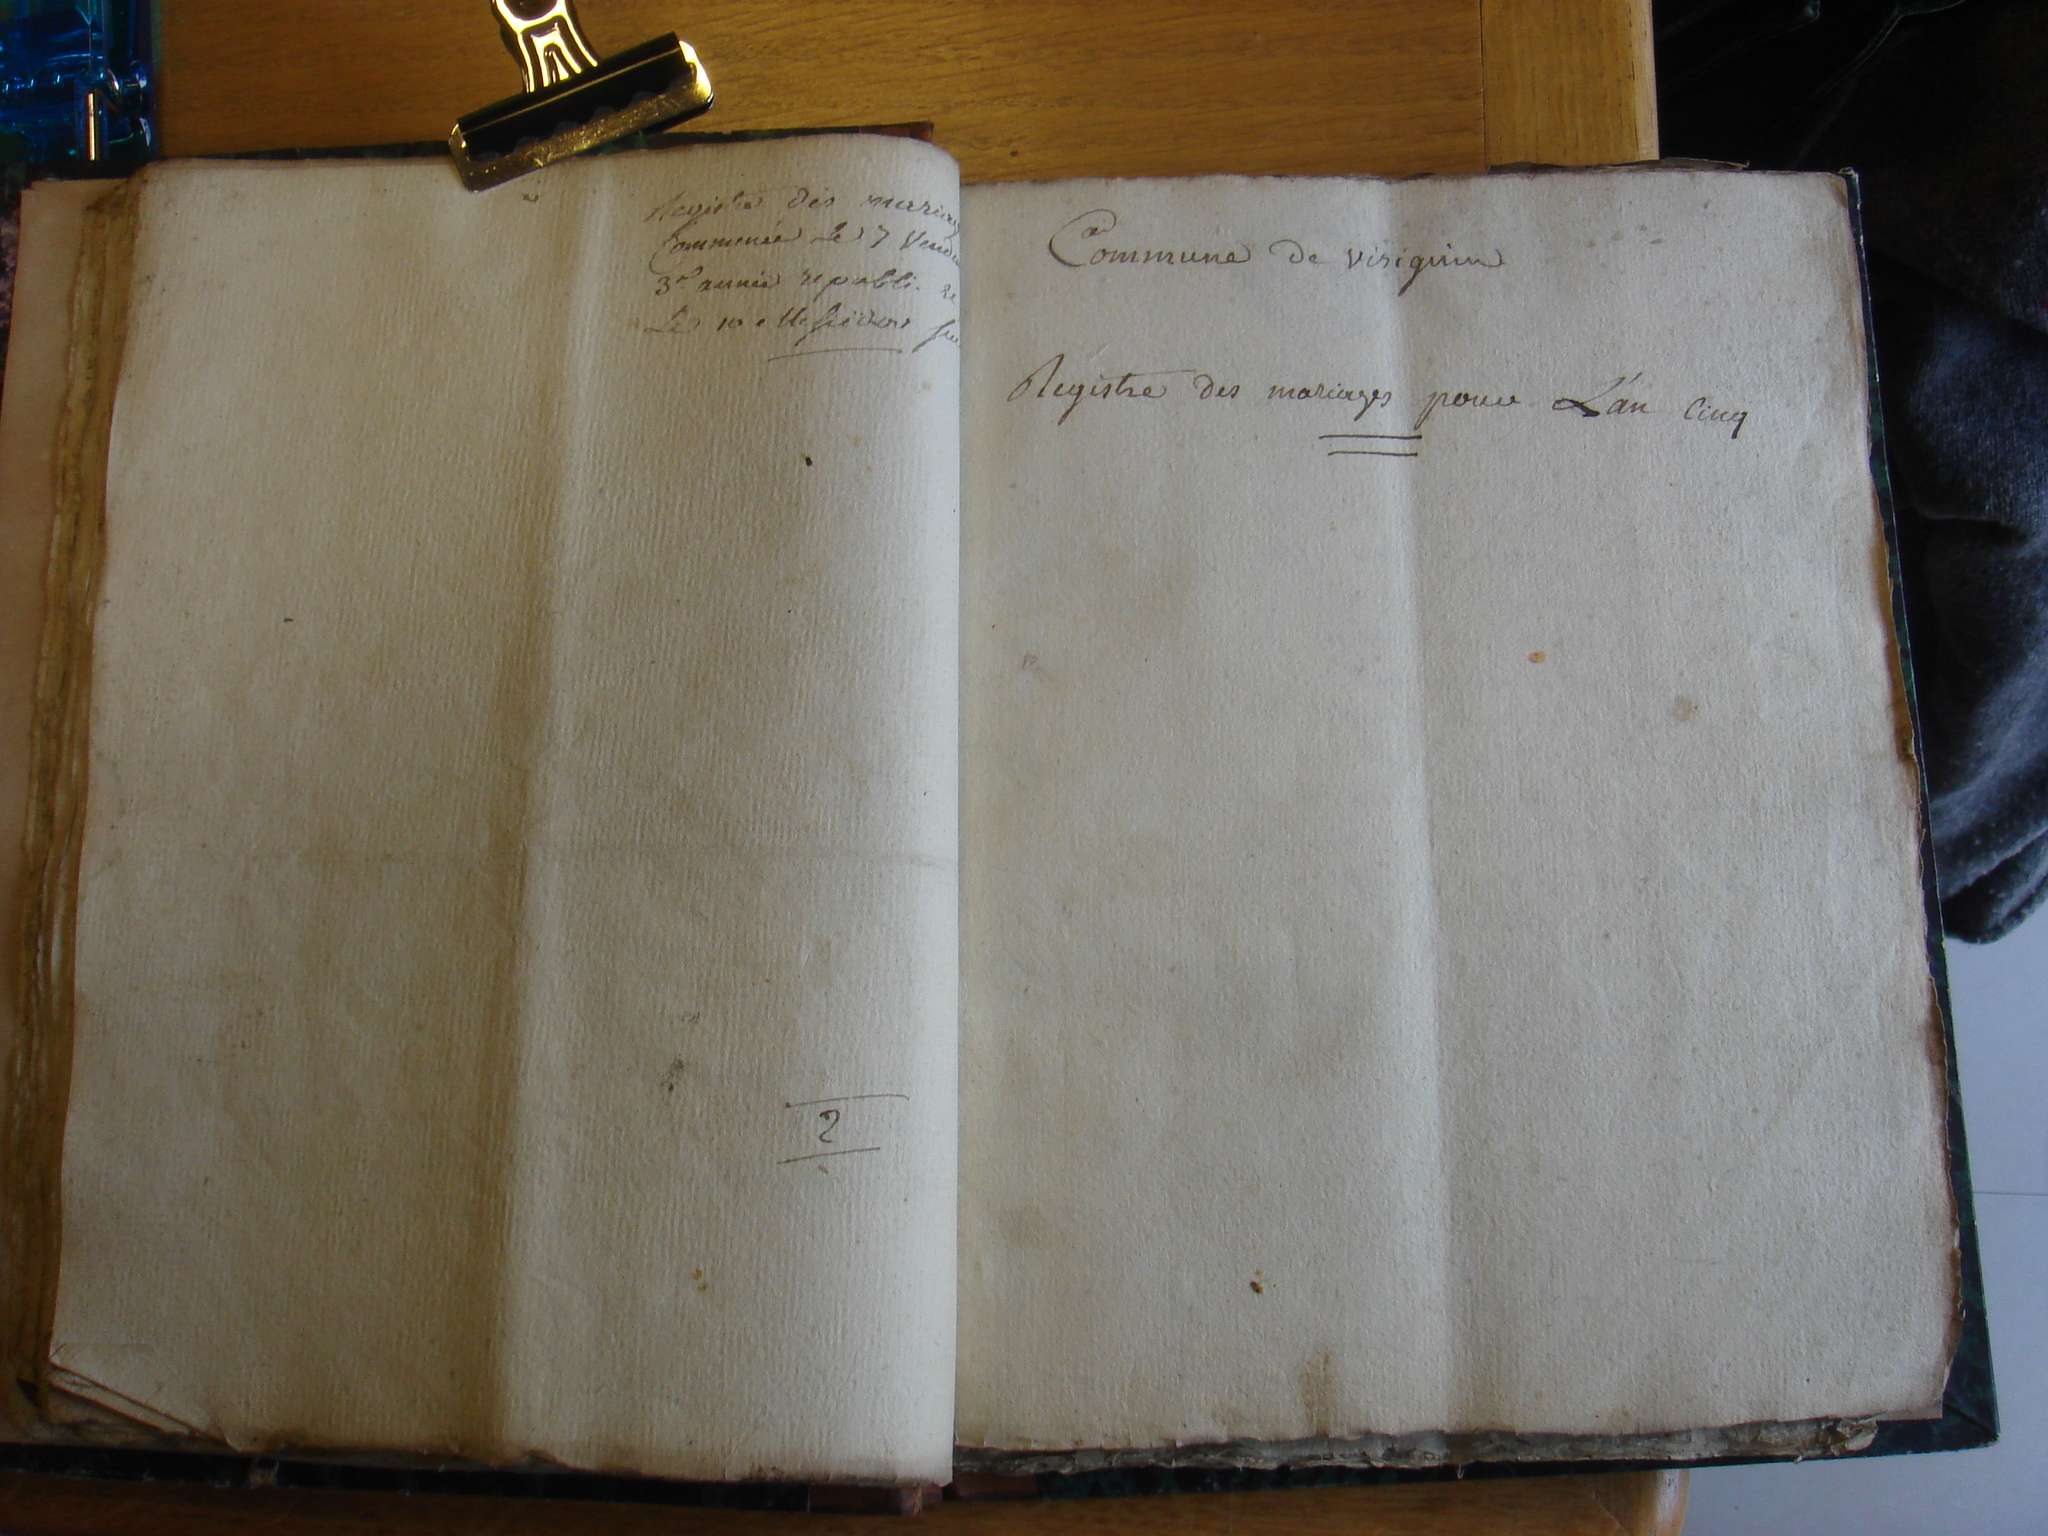 Registre des mariag
Commencée Le 7 Vend
3e année republi. re
Le 10 Messidor
2
Commune de visignien
Registre des mariages pour L'an cinq